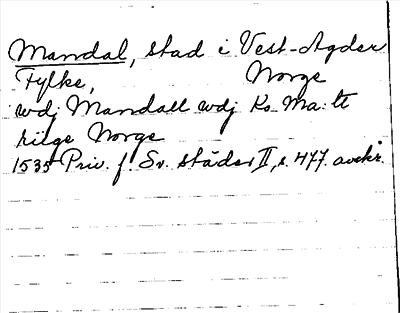 Mandal, stad i Vest-Agder
Fylke, Norge
wdj Mandall wdj Ko. Ma:tt
riige Norge
1535 Priv. f. Sv. städer II, s. 477. avskr.